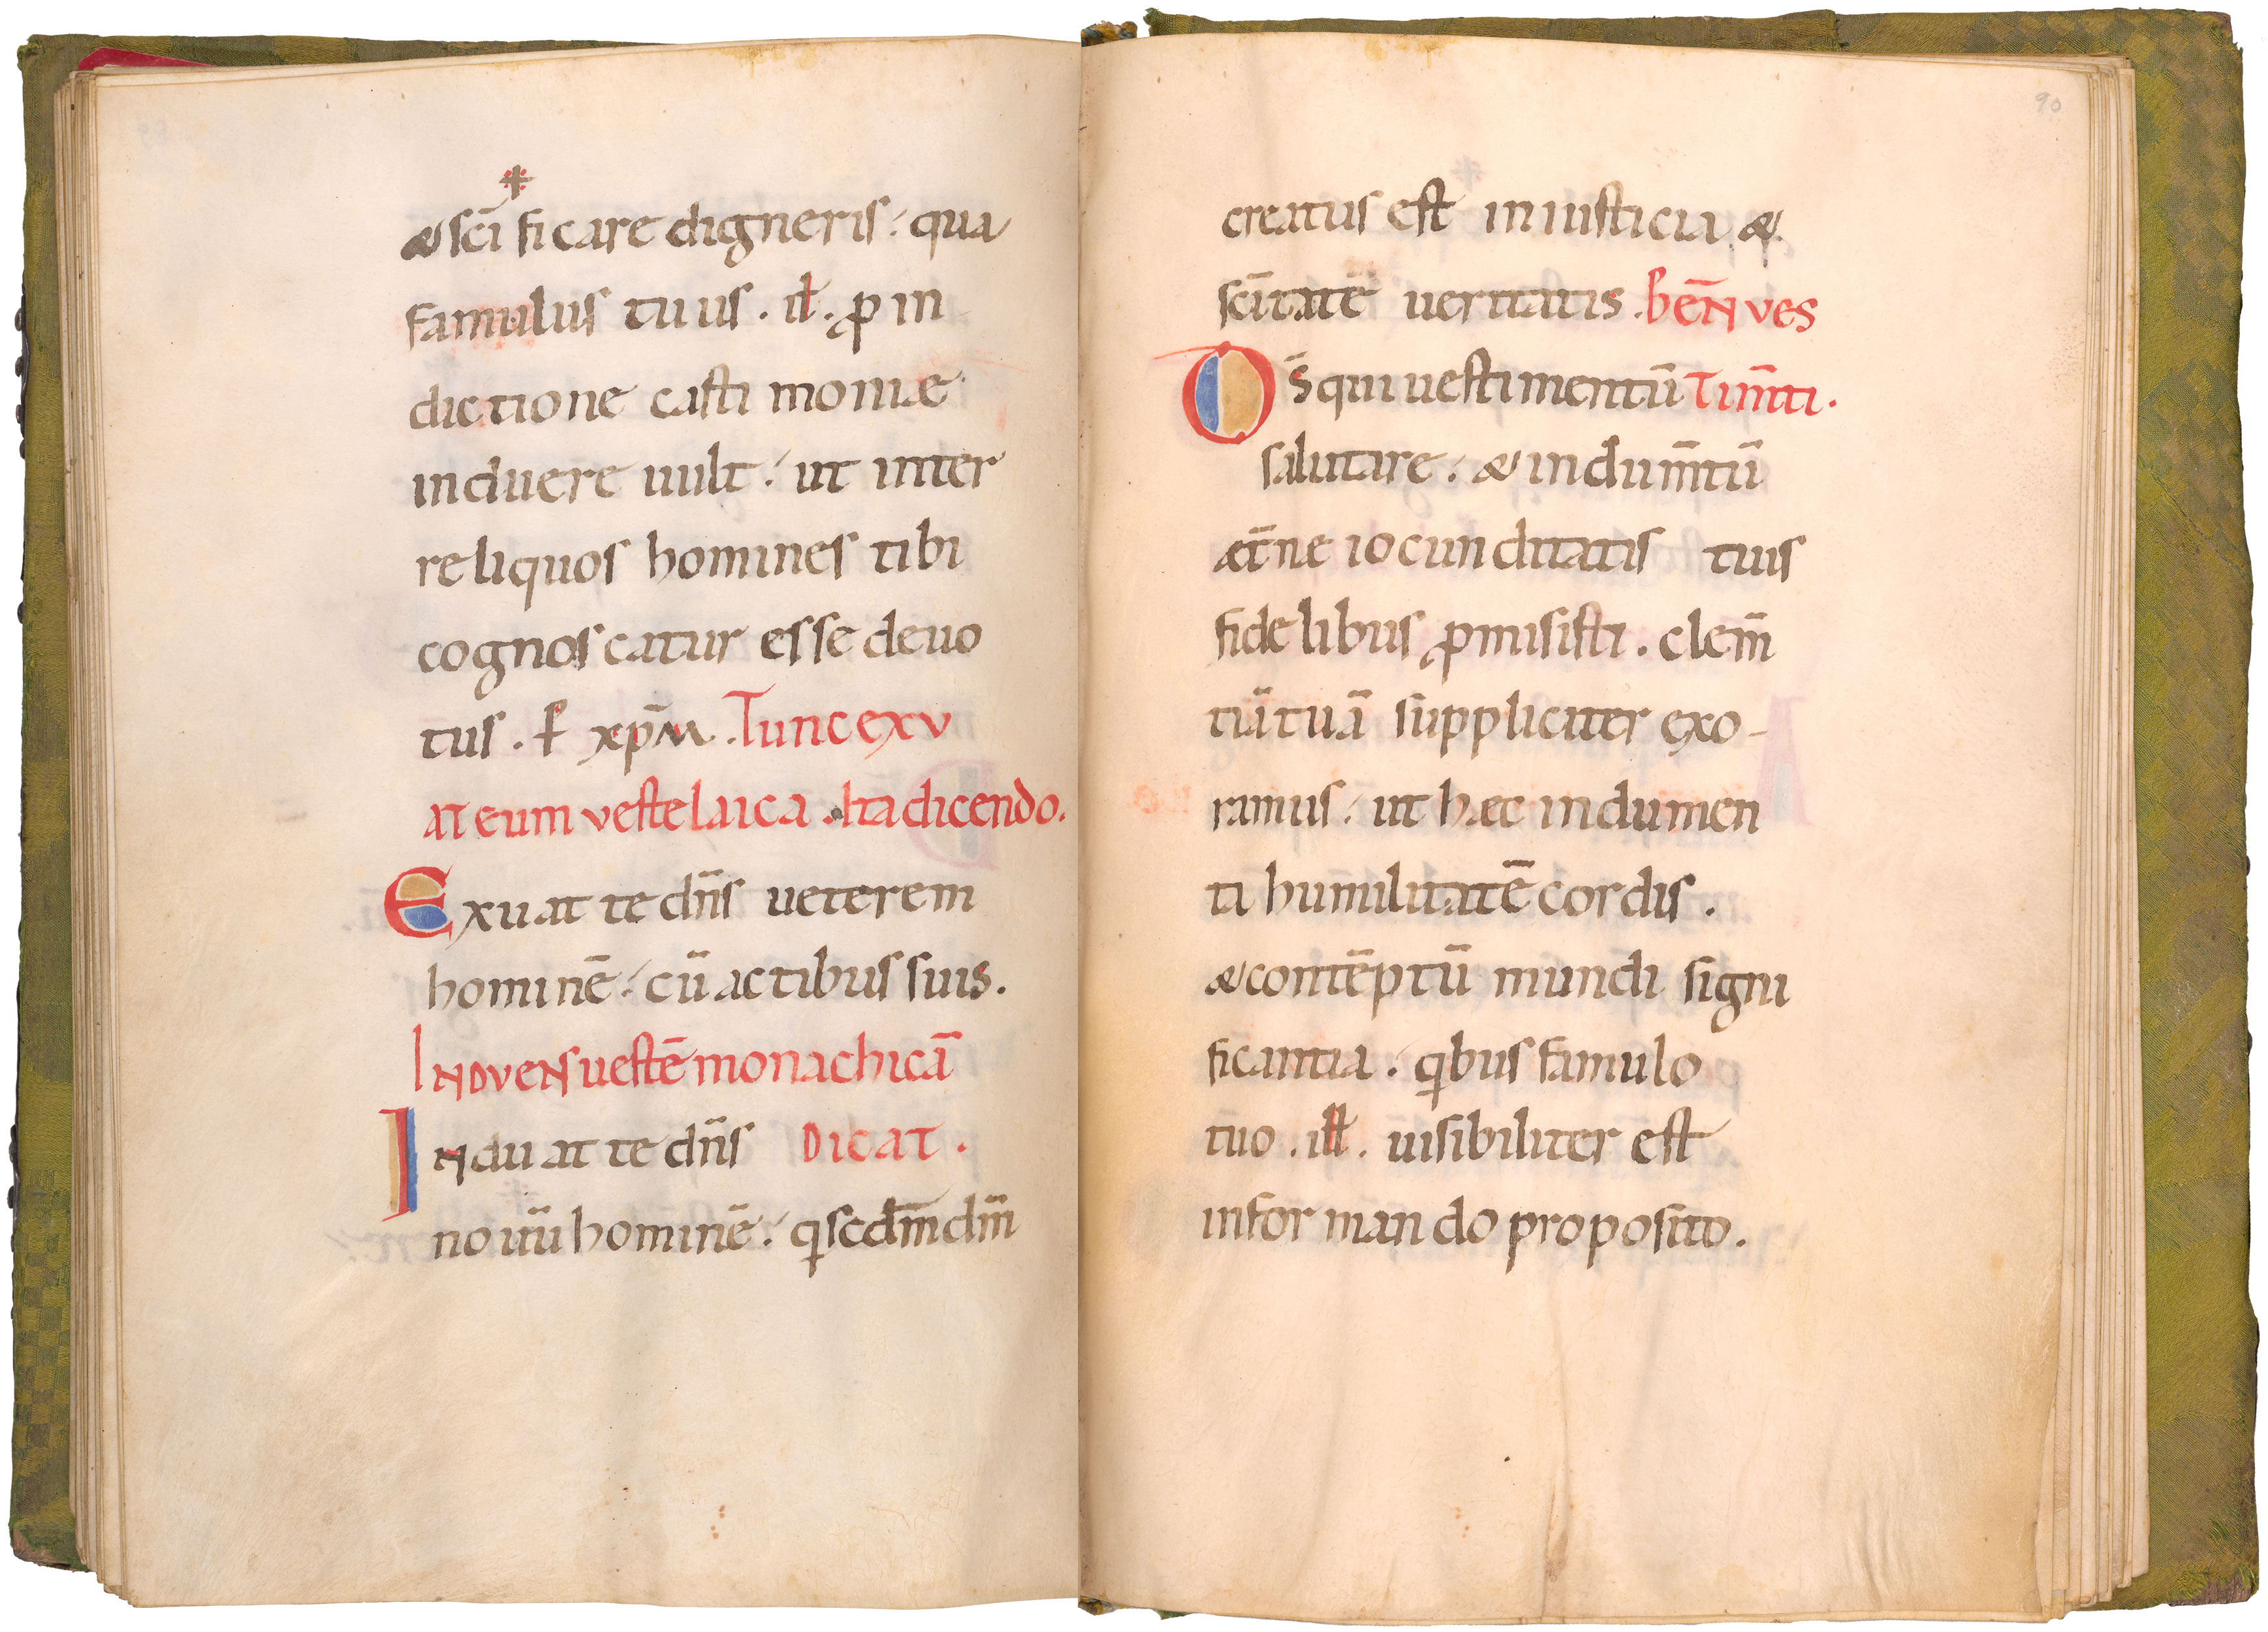 & sc̄i ficare digneris : qua
famulus tuus . iƚ . ꝓ in
dictione castimoniæ
induere uult : ut inter
reliquos homines tibi
cognoscatur esse deuo
tus . ꝑ xp̄m . Tunc exu
at eum veste laica . Ita dicendo.
Exuat te dn̄s ueterem
hominē : cū actibus suis.
Induens uestē monachicā
Induat te dn̄s Dicat .
nouū hominē : q̇ scdm̄ dm̄
90
creatus est in iusticia &
sc̄itatē ueritatis . bēn ves
Ds̄ qui uestimentū tim̄ti.
salutare : & indum̄tū
æt̄ne iocunditatis tuis
fidelibus ꝓmisisti . clem̄
tiā tuā suppliciter exo-
ramus : ut hæc indumen
ta humilitatē cordis .
& contēptū mundi signi
ficantia : q̇bus famulo
tuo . iƚƚ . uisibiliter est
informando proposito.